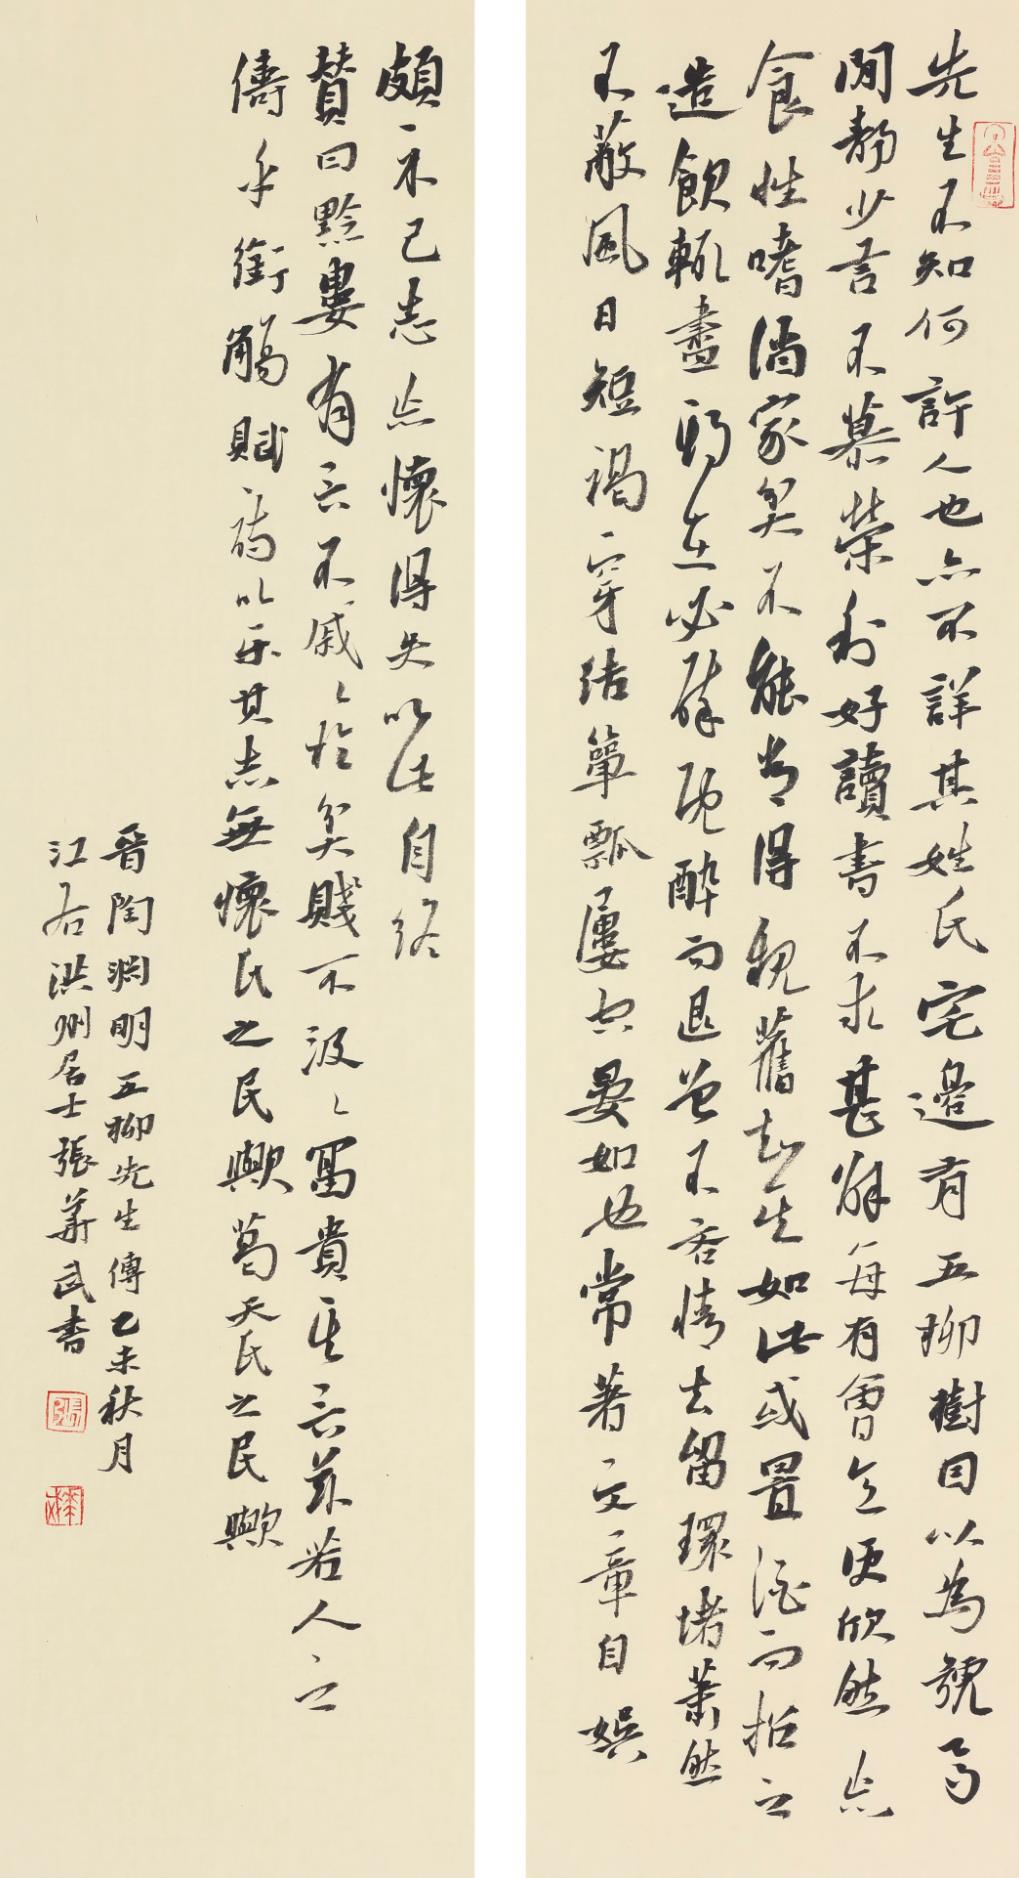 先生不知何許人也亦不詳其姓氏宅邊有五柳樹因以為號焉
閒靜少言不慕榮利好讀書不求甚解每有會意便欣然忘
食性嗜酒家貧不能常得親舊知其如此或置酒而招之
造飲輒盡期在必醉既醉而退曾不吝情去留環堵蕭然
不蔽風日短褐穿結簞瓢屢空晏如也常著文章自娛
頗示己志忘懷得失以此自終
贊曰黔婁有言不戚々於貧賤不汲々富貴其言茲若人之
儔乎銜觴賦詩以樂其志無懷氏之民歟葛天氏之民歟
晉陶淵明五柳先生傳乙未秋月
江右洪州居士張華武書